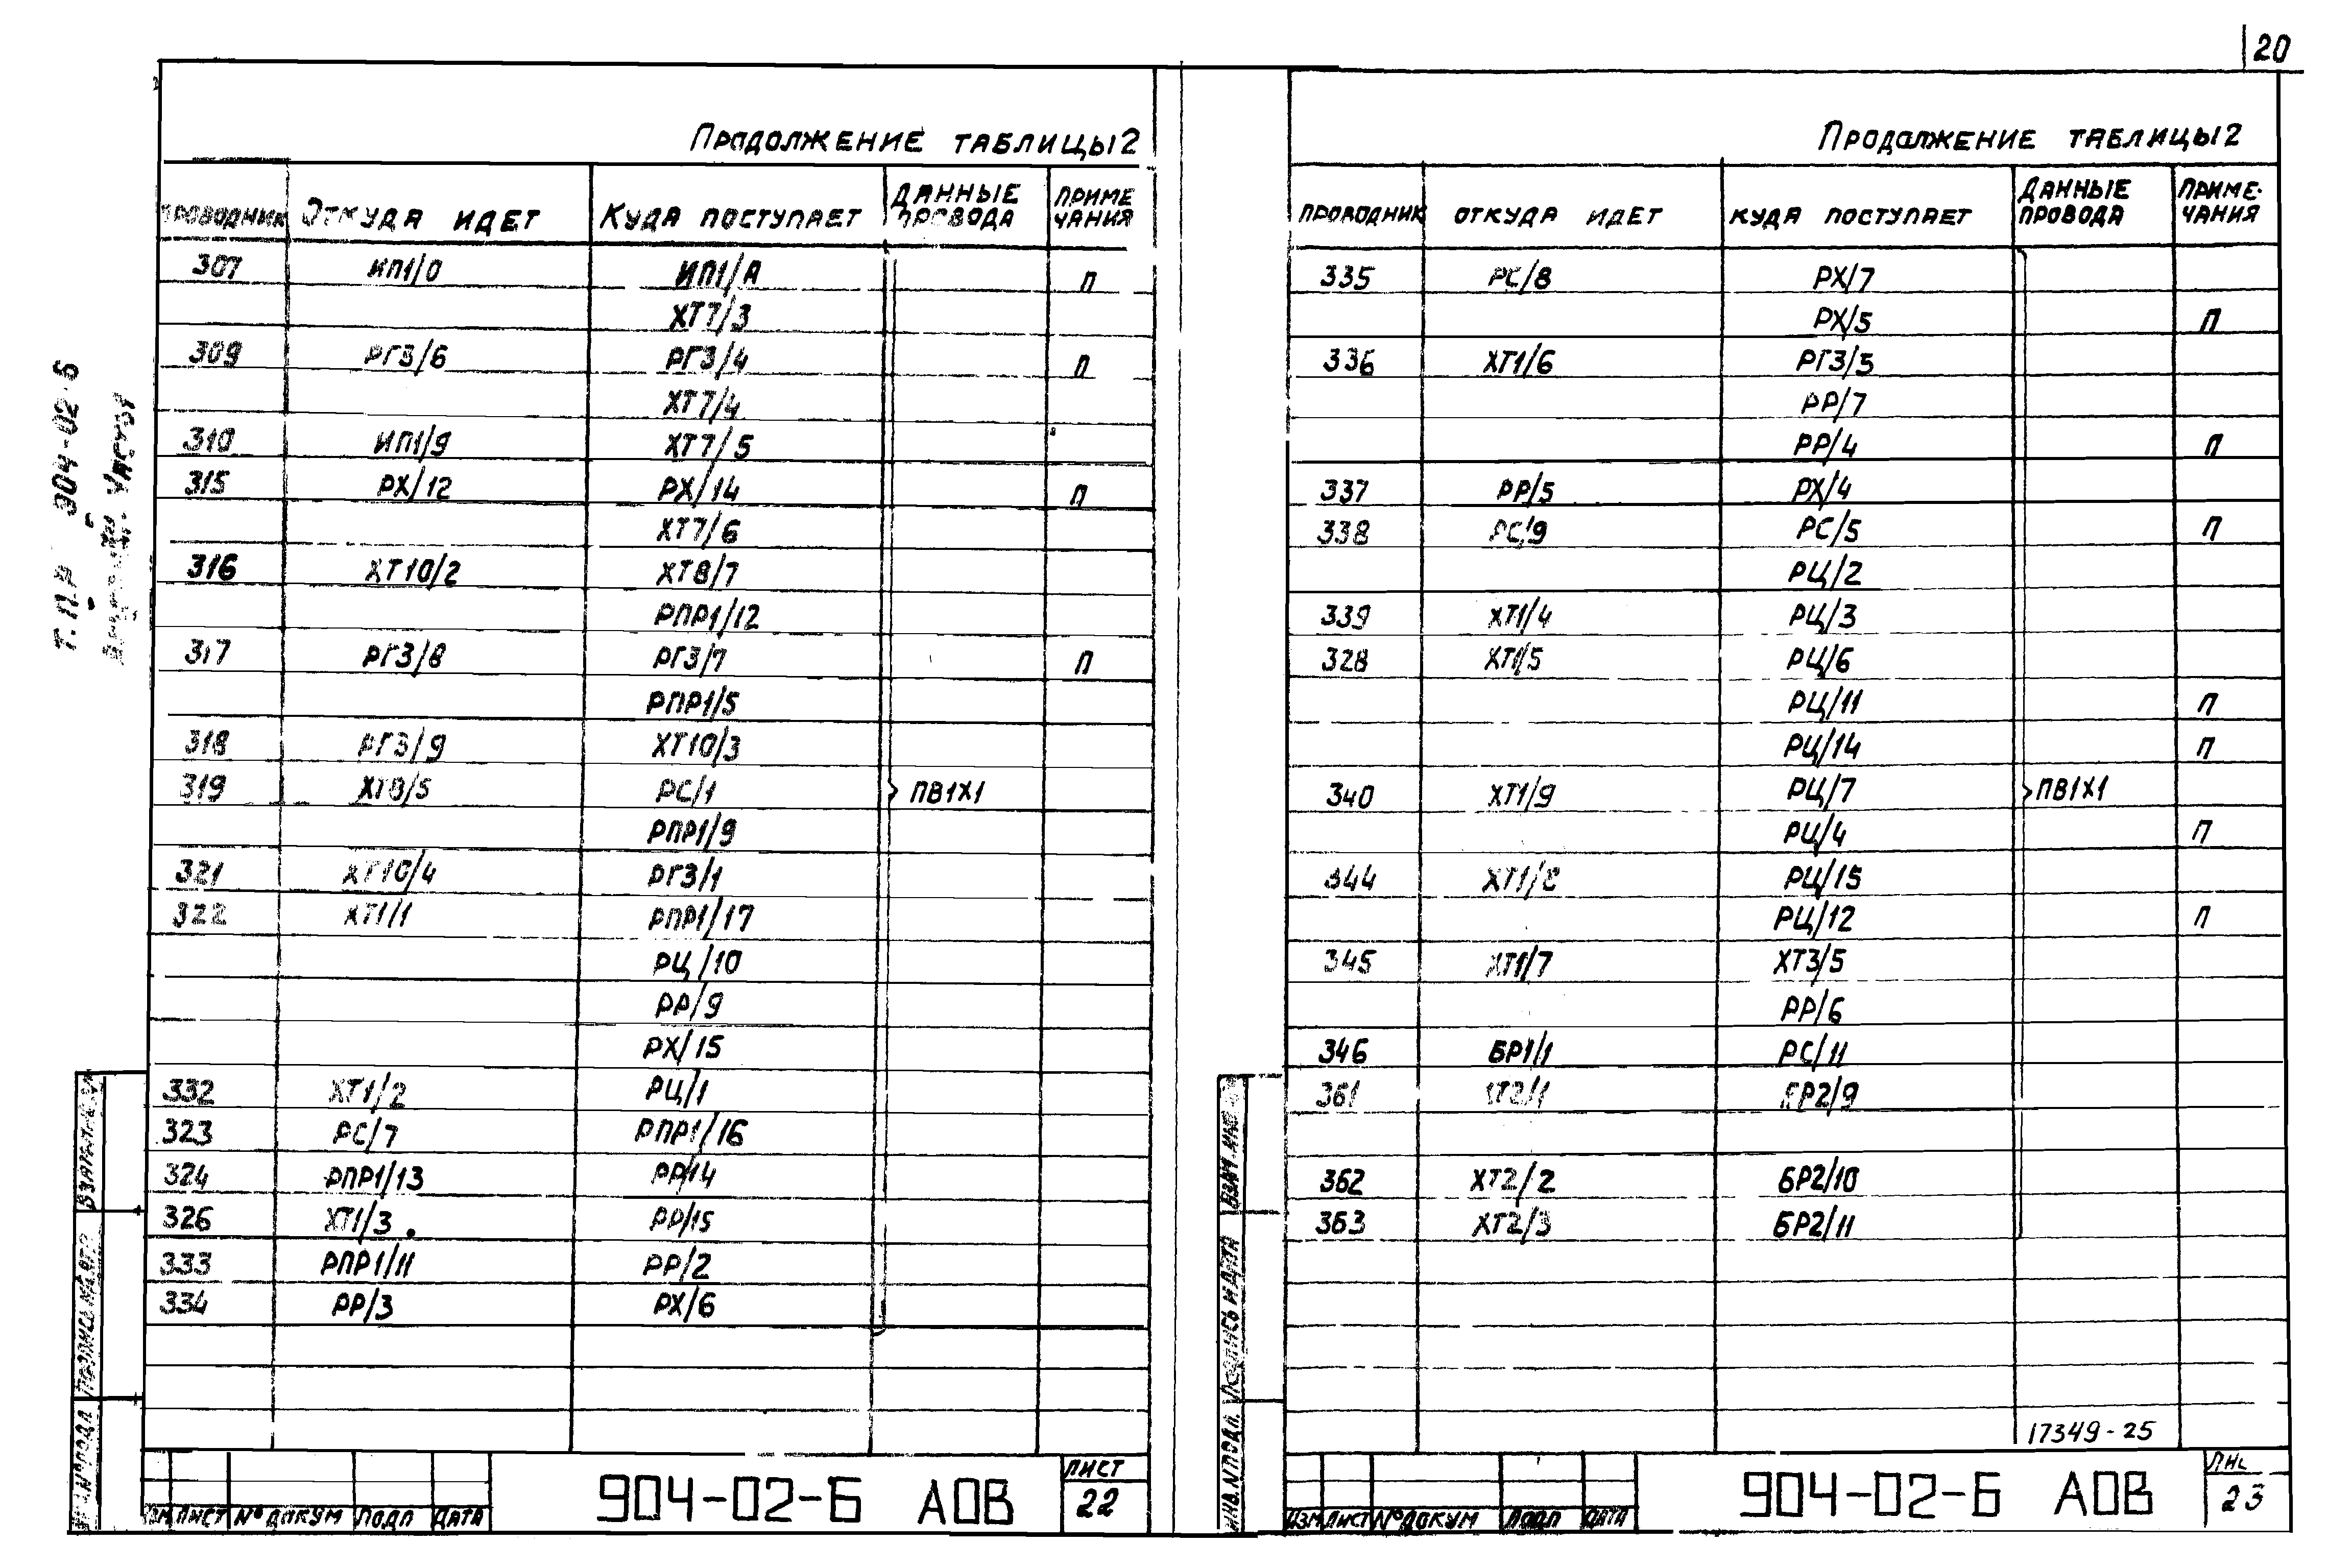 20
Продолжение таблицы 2
проводник Откуда идет Куда поступает Данные провода Примечания
307 ИП1/0 ИП1/А П
ХТ7/3
309 РГ3/6 РГ3/4 П
ХТ7/4
310 ИП1/9 ХТ7/5
315 РХ/12 РХ/14 П
ХТ7/6
316 ХТ10/2 ХТ8/7
РПР1/12
317 РГ3/8 РГ3/7 П
РПР1/5
318 РГ3/9 ХТ10/3
319 ХТ8/5 РС/1 ПВ1Х1
РПР1/9
321 ХТ10/4 РГ3/1
322 ХТ1/1 РПР1/17
РЦ/10
РР/9
РХ/15
332 ХТ1/2 РЦ/1
323 РС/7 РПР1/16
324 РПР1/13 РР/14
326 ХТ1/3 РР/15
333 РПР1/11 РР/2
334 РР/3 РХ/6
Изм Лист № докум Подп Дата
904-02-Б АОВ
Лист
22
Т.П.Р 904-02-Б
Взам. инв. №
Подпись и дата
Инв. № подл
Продолжение таблицы 2
проводник откуда идет куда поступает Данные провода Примечания
335 РС/8 РХ/7
РХ/5 П
336 ХТ1/6 РГ3/5
РР/7
РР/4 П
337 РР/5 РХ/4
338 РС/9 РС/5 П
РЦ/2
339 ХТ1/4 РЦ/3
328 ХТ1/5 РЦ/6
РЦ/11 П
РЦ/14 П
340 ХТ1/9 РЦ/7 ПВ1Х1
РЦ/4 П
344 ХТ1/8 РЦ/15
РЦ/12 П
345 ХТ1/7 ХТ3/5
РР/6
346 БР1/1 РС/11
361 ХТ2/1 БР2/9
362 ХТ2/2 БР2/10
363 ХТ2/3 БР2/11
17349-25
Изм Лист № докум Подп Дата
904-02-Б АОВ
Лис
23
Взам. инв
Подпись и дата
Инв. № подл.